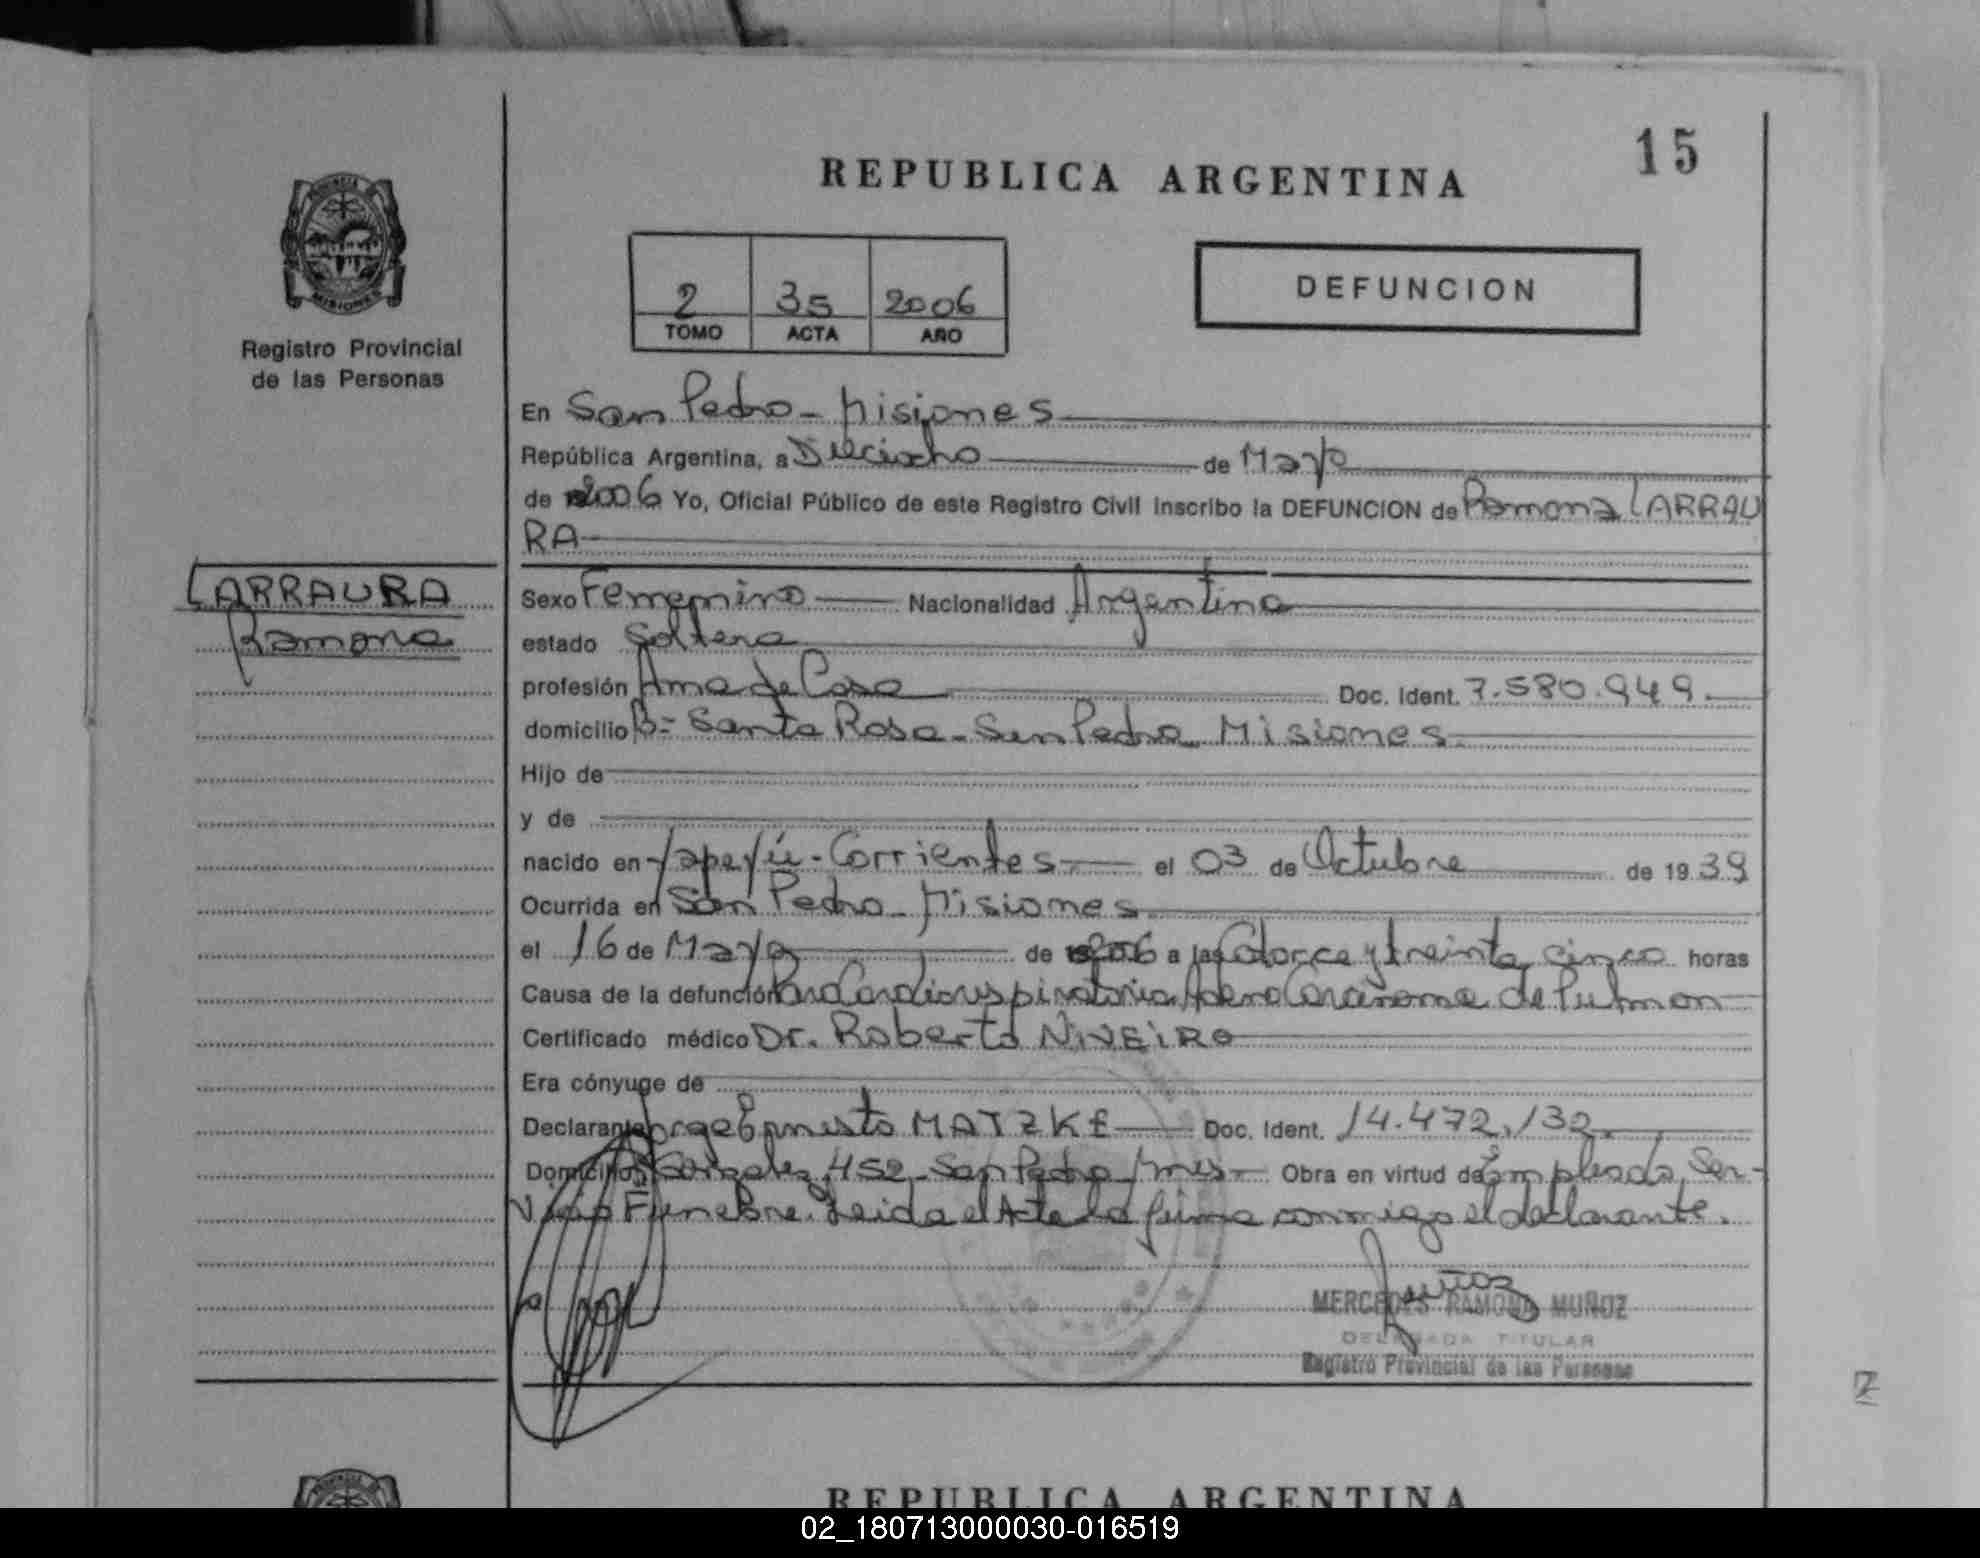 15
REPUBLICA ARGENTINA
PROVINCIA DE
MISIONES
Registro Provincial
de las Personas
2 35 2006
TOMO ACTA AÑO
DEFUNCION
En San Pedro - Misiones
República Argentina, a Dieciocho de Mayo
de 2006 Yo, Oficial Público de este Registro Civil inscribo la DEFUNCION de Ramona LARRAU
RA
LARRAURA
Ramona
Sexo Femenino Nacionalidad Argentina
estado Soltera
profesión Ama de Casa Doc. Ident. 7.580.949.
domicilio B= Santa Rosa - San Pedro Misiones.
Hijo de
y de
nacido en Yapeyú - Corrientes - el 03 de Octubre de 1939
Ocurrida en San Pedro - Misiones
el 16 de Mayo de 2006 a las Catorce y treinta cinco horas
Causa de la defunción Paro Cardiorespiratorio, Adeno Carcinoma de Pulmon
Certificado médico Dr. Roberto NIVEIRO
Era cónyuge de
Declarante Jorge Ernesto MATZKE Doc. Ident. 14.472.132.
Domicilio Gonzalez 452 - San Pedro Mnes - Obra en virtud de Empleado Ser-
vicio Funebre. Leida el Acta la firma conmigo el declarante.
Muñoz
MERCEDES RAMONA MUÑOZ
DELEGADA TITULAR
Registro Provincial de las Personas
2
REPUBLICA ARGENTINA
02_180713000030-016519